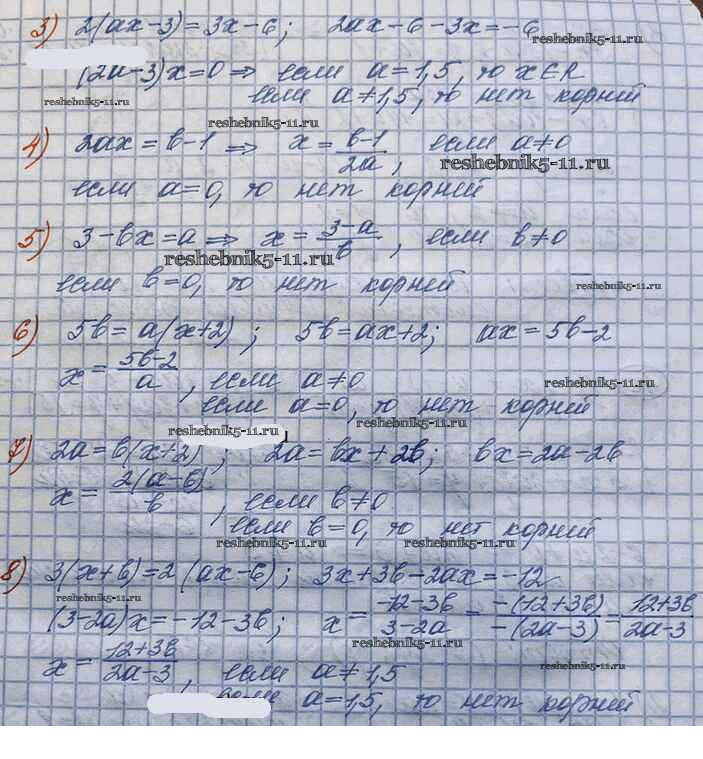 3) 2(ax-3)=3x-6; 2ax-6-3x=-6
reshebnik5-11.ru
(2a-3)x=0 ⇒ если a=1,5, то x∈R
reshebnik5-11.ru
если a≠1,5, то нет корней
reshebnik5-11.ru
4) 2ax=b-1 ⇒ x=(b-1)/2a, если a≠0
reshebnik5-11.ru
если a=0, то нет корней
5) 3-bx=a ⇒ x=(3-a)/b, если b≠0
reshebnik5-11.ru
если b=0, то нет корней
reshebnik5-11.ru
6) 5b=a(x+2); 5b=ax+2; ax=5b-2
x=(5b-2)/a, если a≠0
reshebnik5-11.ru
если a=0, то нет корней
reshebnik5-11.ru
reshebnik5-11.ru
7) 2a=b(x+2); 2a=bx+2b; bx=2a-2b
x=2(a-b)/b, если b≠0
если b=0, то нет корней
reshebnik5-11.ru reshebnik5-11.ru
8) 3(x+b)=2(ax-6); 3x+3b-2ax=-12
reshebnik5-11.ru
(3-2a)x=-12-3b; x=(-12-3b)/(3-2a)=-(12+3b)/-(2a-3)=(12+3b)/(2a-3)
reshebnik5-11.ru
x=(12+3b)/(2a-3), если a≠1,5
reshebnik5-11.ru
если a=1,5, то нет корней
reshebnik5-11.ru
reshebnik5-11.ru